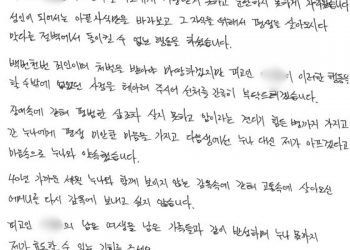 성인이 되어서는 아픈 자식만을 바라보고 그 자식을 위해서 평생을 살아오시다
막다른 절벽에서 돌이킬 수 없는 행동을 하셨습니다.
백번천번 죄인이며 처벌을 받아야 마땅하겠지만 피고인 이 이러한 행동을
할 수밖에 없었던 사정을 헤아려 주어 선처를 간곡히 부탁드리겠습니다.
장애속에 갇혀 평범한 삶조차 살지 못하고 암이라는 견디기 힘든 병까지 가지고
간 누나에게 평생 미안한 마음을 가지고 다음생에선 누나 대신 제가 아프겠다고
마음속으로 누나와 약속했습니다.
40년 가까운 세월 누나와 함께 보이지 않는 감옥속에 갇혀 고통속에 살아오신
어머니를 다시 감옥에 보내고 싶지 않습니다.
피고인 의 남은 여생을 남은 가족들과 같이 반성하며 누나 몫까지
제가 효도할 수 있는 기회를 주세요